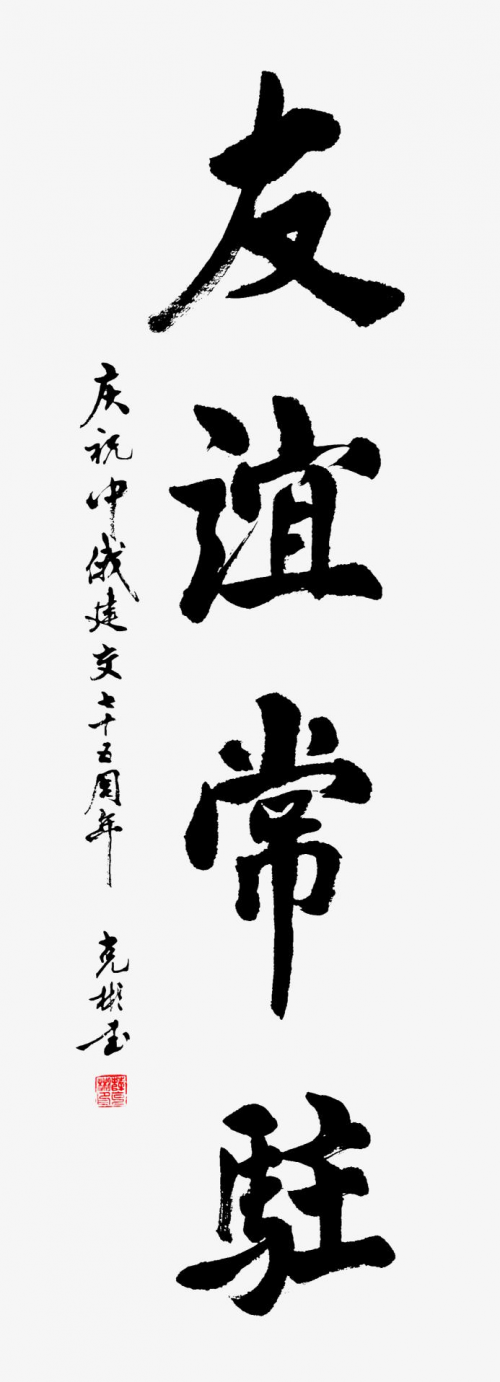 友谊常駐
庆祝中俄建交七十五周年 克彬书